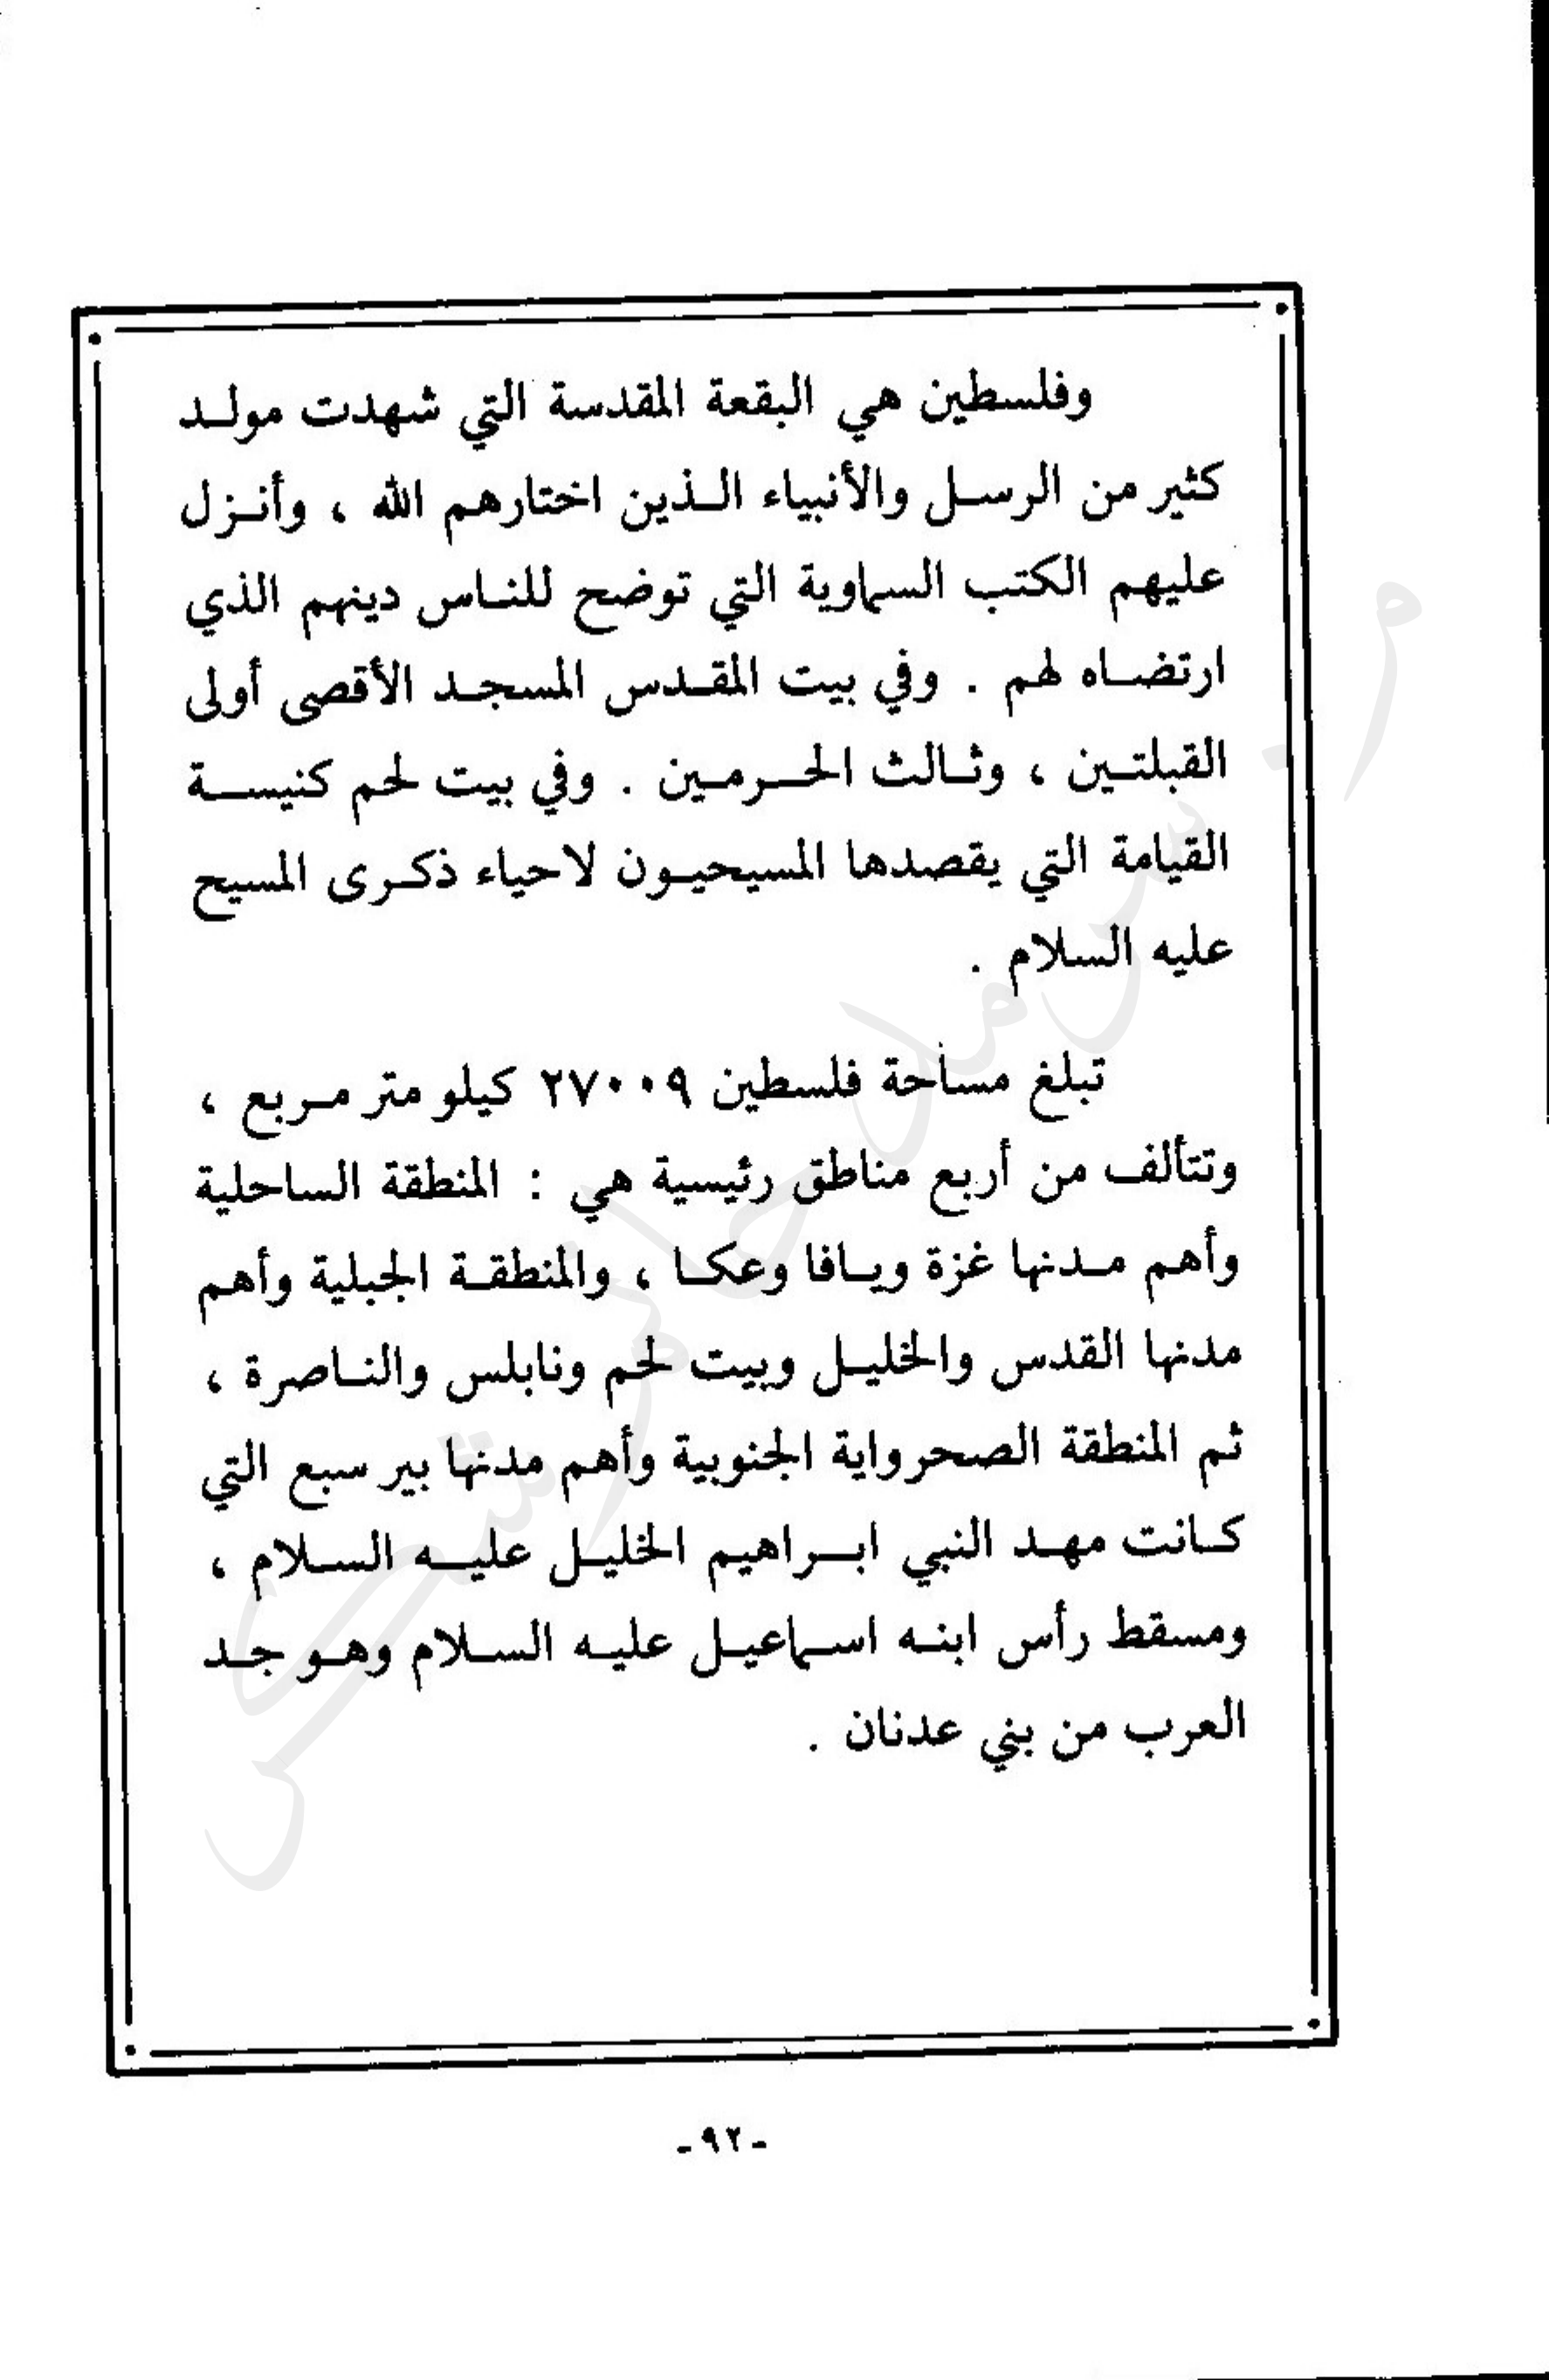 وفلسطين هي البقعة المقدسة التي شهدت مولد
كثير من الرسل والأنبياء الذين اختارهم الله ، وأنزل
عليهم الكتب السماوية التي توضح للناس دينهم الذي
ارتضاه لهم . وفي بيت المقدس المسجد الأقصى أولى
القبلتين ، وثالث الحرمين . وفي بيت لحم كنيسة
القيامة التي يقصدها المسيحيون لاحياء ذكرى المسيح
عليه السلام .
تبلغ مساحة فلسطين ٢٧٠٠٩ كيلو متر مربع ،
وتتألف من أربع مناطق رئيسية هي : المنطقة الساحلية
وأهم مدنها غزة ويافا وعكا ، والمنطقة الجبلية وأهم
مدنها القدس والخليل وبيت لحم ونابلس والناصرة ،
ثم المنطقة الصحرواية الجنوبية وأهم مدنها بير سبع التي
كانت مهد النبي ابراهيم الخليل عليه السلام ،
ومسقط رأس ابنه اسماعيل عليه السلام وهو جد
العرب من بني عدنان .
-٩٢-